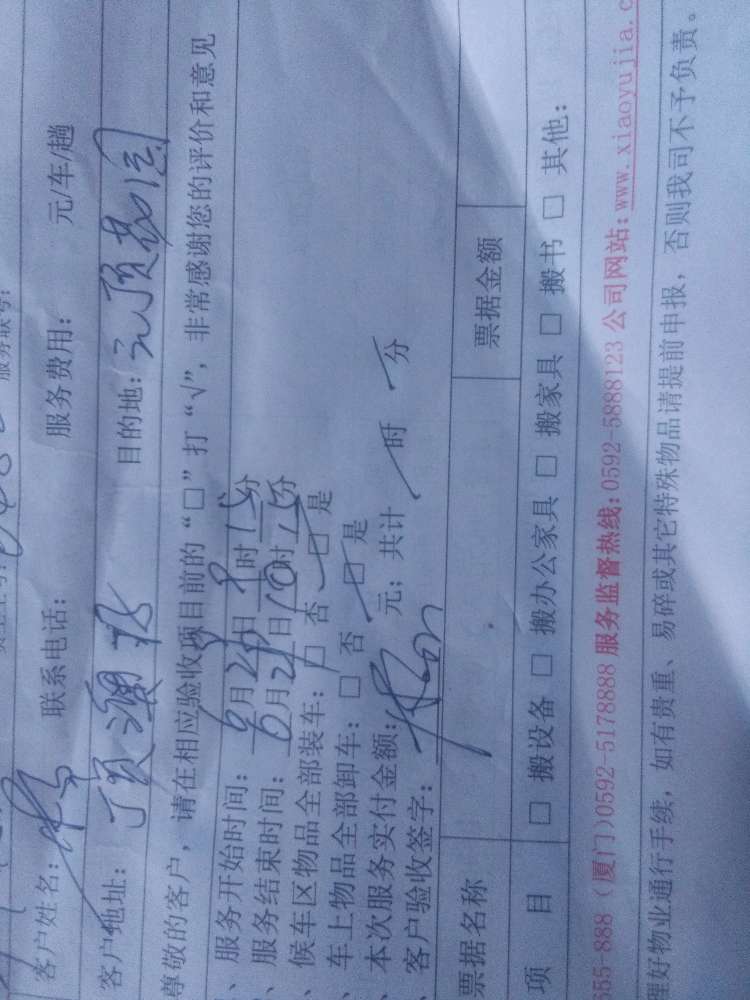 服务联号:
客户姓名: 联系电话: 服务费用: 元/车/趟
客户地址: 目的地:
尊敬的客户,请在相应验收项目前的“□”打“√”,非常感谢您的评价和意见
、服务开始时间: 6月29日9时15分
、服务结束时间: 6月29日10时15分
、候车区物品全部装车: □ 否 □ 是
、车上物品全部卸车: □ 否 □ 是
、本次服务实付金额: 元; 共计 时 分
、客户验收签字:
票据名称 票据金额
项 目 □ 搬设备 □ 搬办公家具 □ 搬家具 □ 搬书 □ 其他:
55-888 (厦门)0592-5178888 服务监督热线:0592-5888123 公司网站:www.xiaoyujia.c
理好物业通行手续,如有贵重、易碎或其它特殊物品请提前申报,否则我司不予负责。